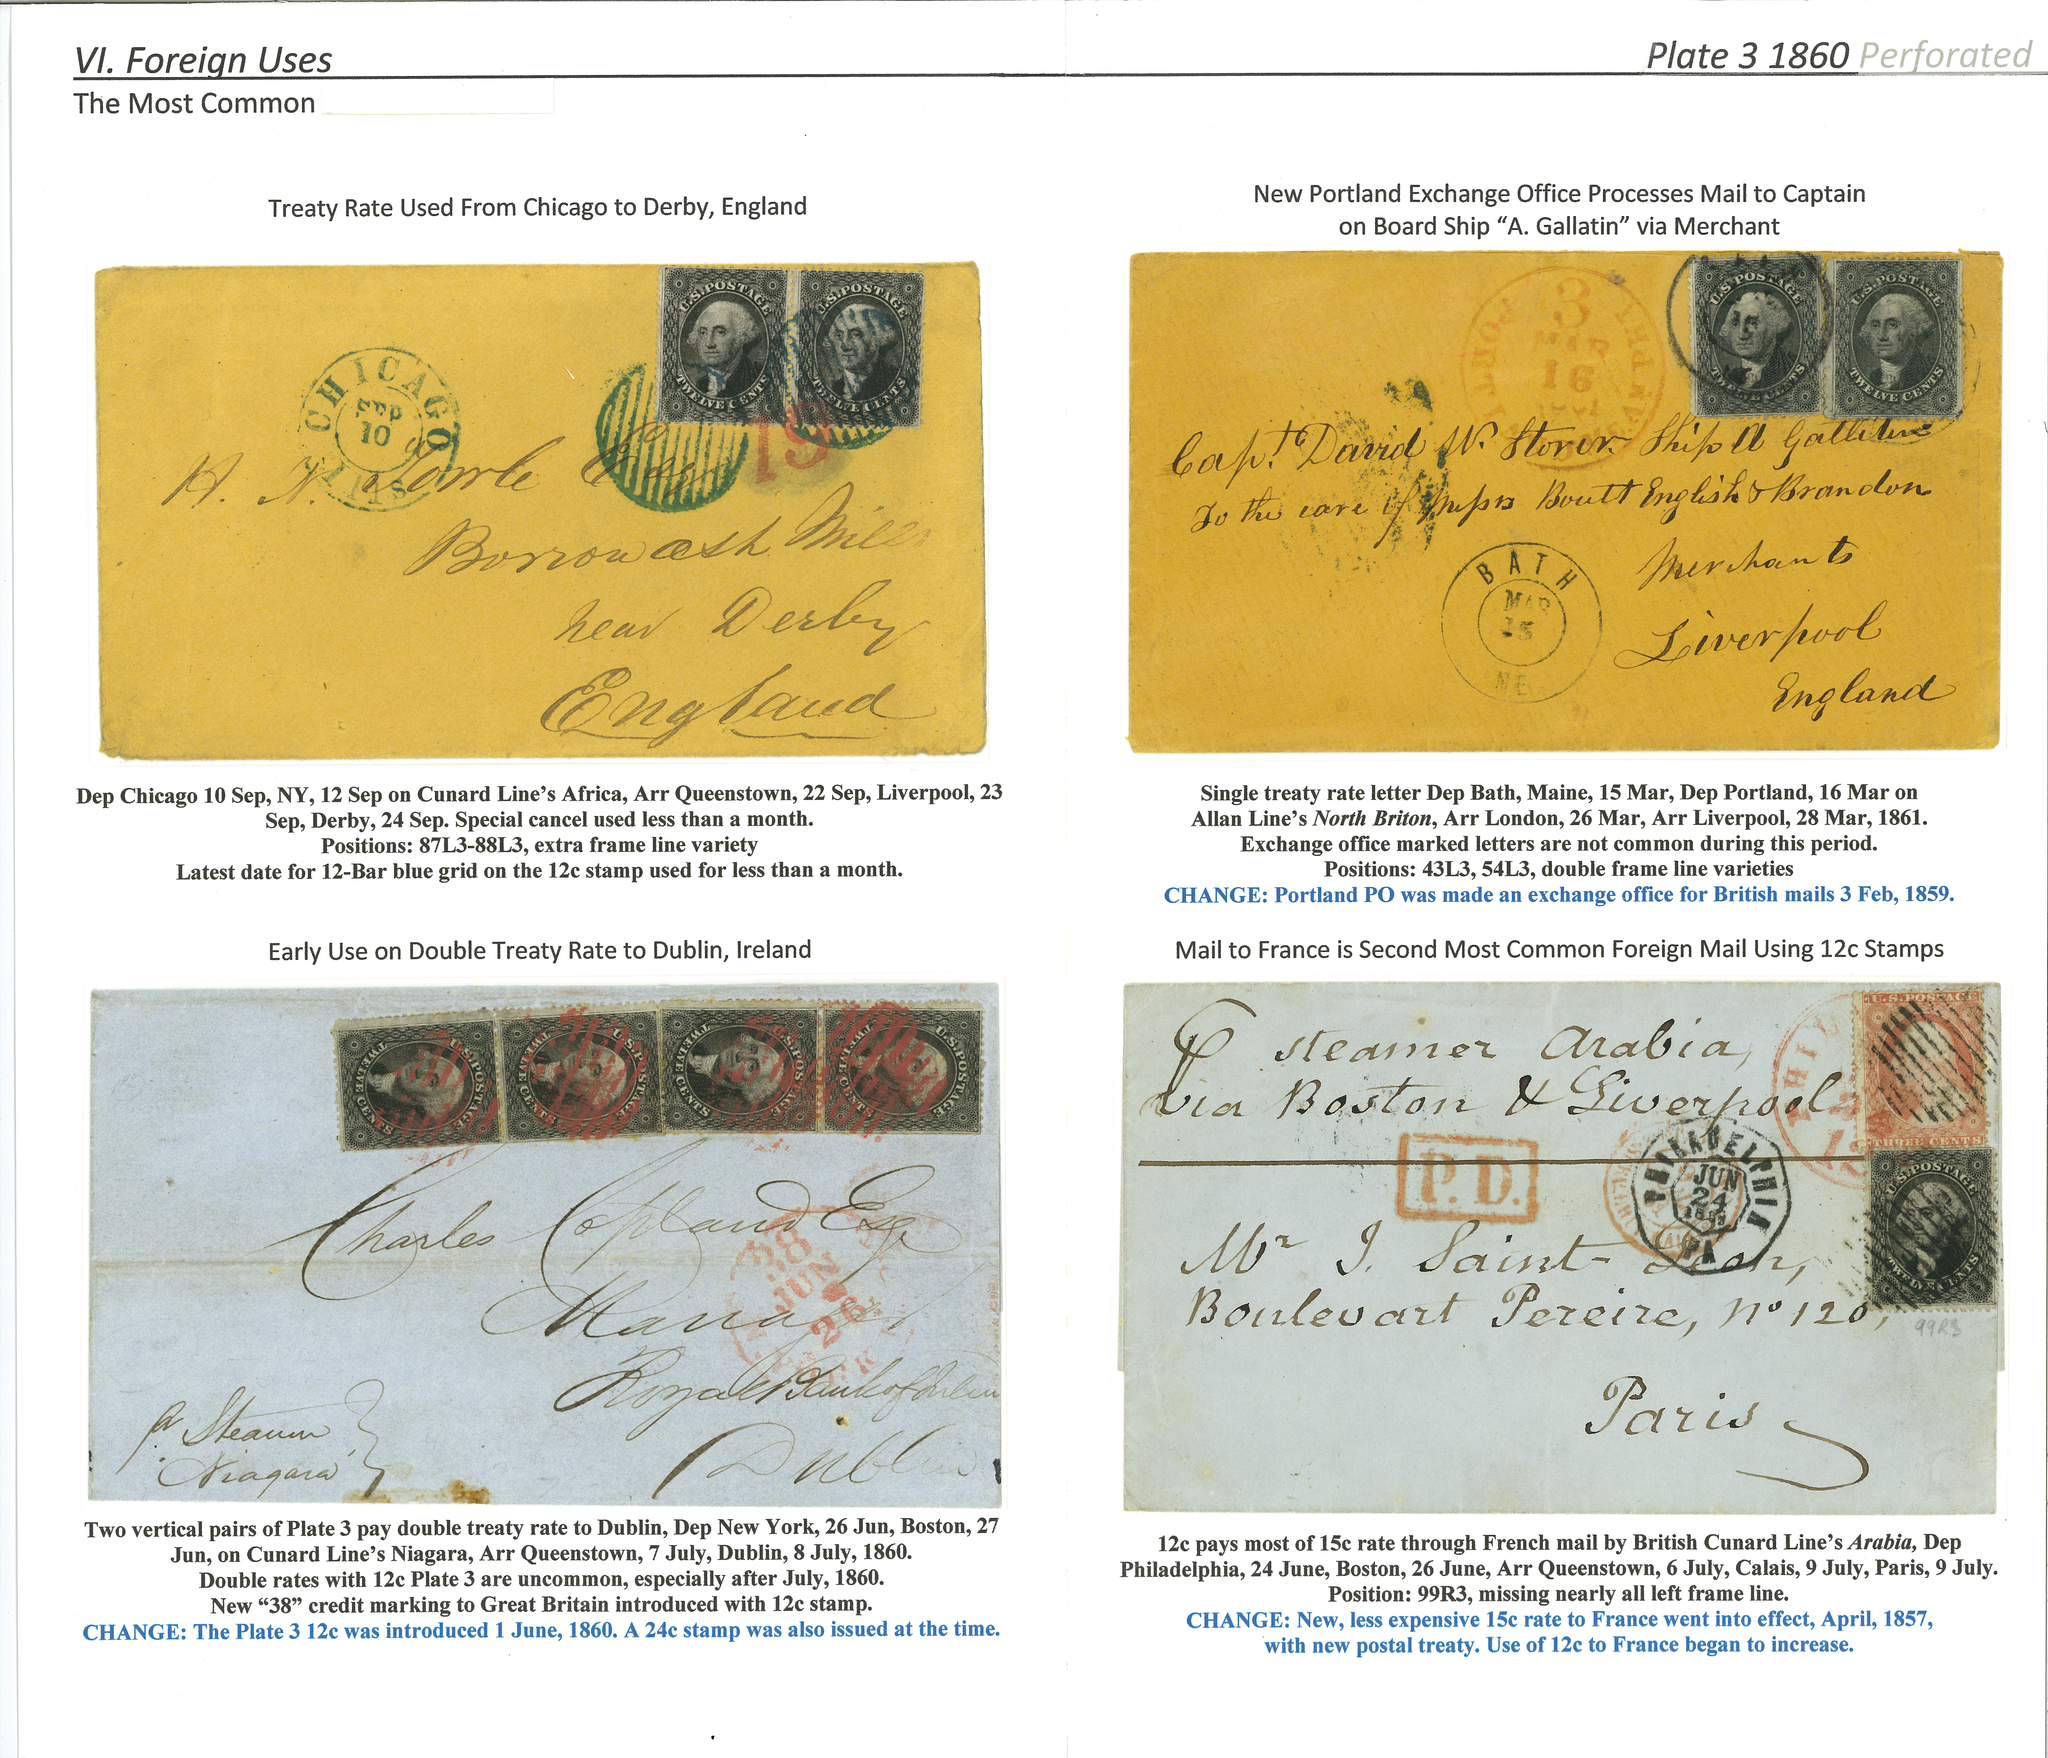 VI. Foreign Uses
Plate 3 1860 Perforated
The Most Common
Treaty Rate Used From Chicago to Derby, England
U.S. POSTAGE
TWELVE CENTS
U.S. POSTAGE
TWELVE CENTS
CHICAGO
SEP
10
ILLINOIS
19
H. N. Towle Esq
Borrowash Mills
near Derby
England
Dep Chicago 10 Sep, NY, 12 Sep on Cunard Line's Africa, Arr Queenstown, 22 Sep, Liverpool, 23
Sep, Derby, 24 Sep. Special cancel used less than a month.
Positions: 87L3-88L3, extra frame line variety
Latest date for 12-Bar blue grid on the 12c stamp used for less than a month.
New Portland Exchange Office Processes Mail to Captain
on Board Ship “A. Gallatin” via Merchant
U.S. POSTAGE
TWELVE CENTS
U.S. POSTAGE
TWELVE CENTS
3
MAR
16
Capt. David W. Storer Ship A Gallatin
To the care of Messrs Boult English & Brandon
Merchants
Liverpool
England
BATH
MAR
15
ME.
Single treaty rate letter Dep Bath, Maine, 15 Mar, Dep Portland, 16 Mar on
Allan Line's North Briton, Arr London, 26 Mar, Arr Liverpool, 28 Mar, 1861.
Exchange office marked letters are not common during this period.
Positions: 43L3, 54L3, double frame line varieties
CHANGE: Portland PO was made an exchange office for British mails 3 Feb, 1859.
Early Use on Double Treaty Rate to Dublin, Ireland
U.S. POSTAGE
TWELVE CENTS
U.S. POSTAGE
TWELVE CENTS
U.S. POSTAGE
TWELVE CENTS
U.S. POSTAGE
TWELVE CENTS
Charles Copland Esq
Manager
Royal Bank of Ireland
Dublin
38
JUN
26
pr Steamer
Niagara
Two vertical pairs of Plate 3 pay double treaty rate to Dublin, Dep New York, 26 Jun, Boston, 27
Jun, on Cunard Line's Niagara, Arr Queenstown, 7 July, Dublin, 8 July, 1860.
Double rates with 12c Plate 3 are uncommon, especially after July, 1860.
New “38” credit marking to Great Britain introduced with 12c stamp.
CHANGE: The Plate 3 12c was introduced 1 June, 1860. A 24c stamp was also issued at the time.
Mail to France is Second Most Common Foreign Mail Using 12c Stamps
U.S. POSTAGE
THREE CENTS
U.S. POSTAGE
TWELVE CENTS
P steamer Arabia,
via Boston & Liverpool
P.D.
PHILADELPHIA
JUN
24
PA
Mr J. Saint-
Boulevart Pereire, no 120,
99R3
Paris
12c pays most of 15c rate through French mail by British Cunard Line's Arabia, Dep
Philadelphia, 24 June, Boston, 26 June, Arr Queenstown, 6 July, Calais, 9 July, Paris, 9 July.
Position: 99R3, missing nearly all left frame line.
CHANGE: New, less expensive 15c rate to France went into effect, April, 1857,
with new postal treaty. Use of 12c to France began to increase.